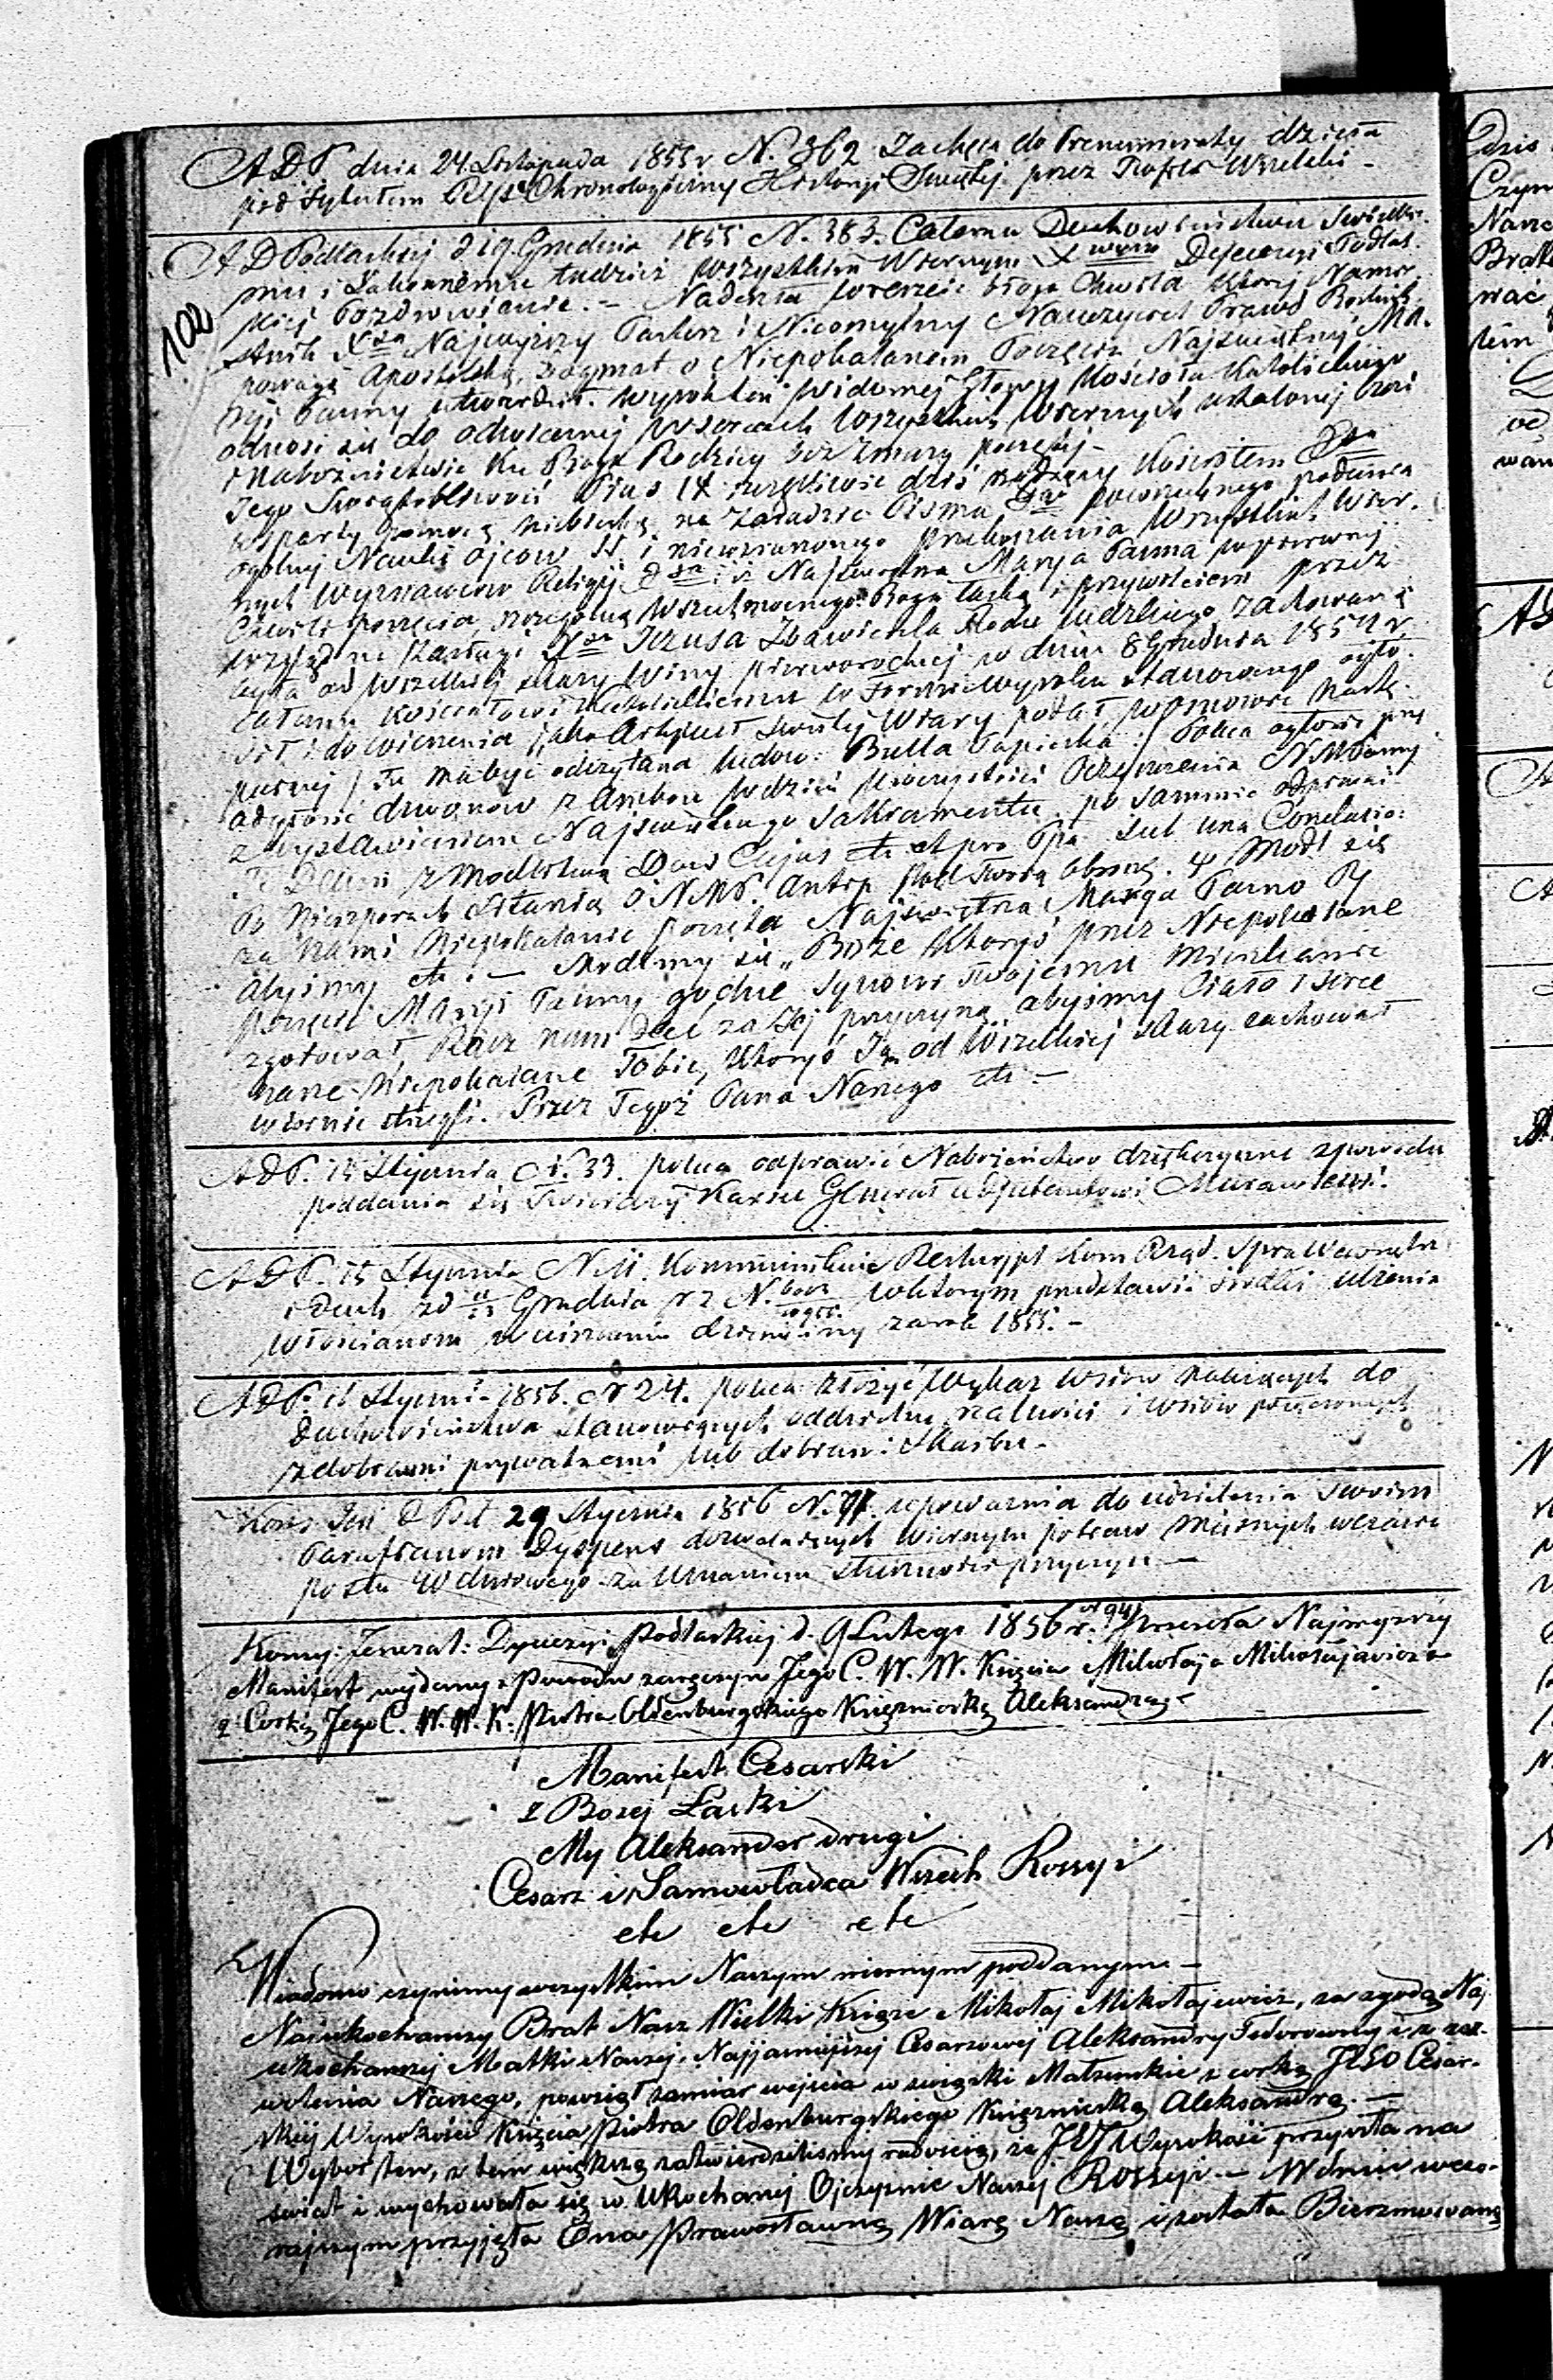 ADP. dnia 24 Listopada 1855 r N. 362 Zachęca do Prenumeraty dzieła
pod Tytułem Rys Chronologiczny Historyi Świętej przez
AD Podlaskiej d 19 Grudnia 1855 N. 383. Całemu Duchowieństwu Świeckie-
mu i Zakonnemu tudzież wszystkim Wiernym Dyecezyi Podlas-
kiej Pozdrowienie. – Nadeszła wreszcie błoga Chwila której Names-
tnik Xsa Najwyższy Pasterz i Nieomylny Nauczyciel Prawd Boskich
powagą Apostolską, dogmat o Niepokalanem Poczęciu Najświętszej Ma-
ryi Panny utwierdził. Wyrok ten widomej Głowy Kościoła Katolickiego
odnosi się do odwiecznej w sercach wszystkich Wiernych ustalonej czci
i Nabożeństwie ku Boga Rodzicy bez zmazy poczętej –
Jego Świątobliwość Pius IX szczęśliwie dziś rządzący Kościołem
wsparty pomocą niebieską na zasadzie Pisma Sgo powszechnego podania
ogólnej Nauki Ojców SS. i niewzruszonego przekonania Wszystkich Wier-
nych Wyznawców Religij iż Najświętsza Marya Panna w pierwszej
Chwili poczęcia, szczególną Wszechmocnego Boga łaską i przywilejem przez
wzgląd na Zasługi Xsa Jezusa Zbawiciela Rodu ludzkiego zachowaną
była od wszelkiej zmazy winy pierworodnej w dniu 8 Grudnia 1854 r.
całemu Kościołowi Katolickiemu w Formie wyroku stanowczego ogło-
sił i do wierzenia jako Artykuł Świętej Wiary podał w osnowie nastę-
pującej / Tu ma być odczytana ludowi Bulla Papieska / Poleca ogłosić przy
odgłosie dzwonów z Ambon w dzień Uroczystości Oczyszczenia NMPanny
z wystawieniem Najświętszego Sakramentu po Summie odprawić
Te Deum z Modlitwą Deus Cujus etc et pro Papa sub una Conclusio:
Po Nieszporach Litanią o NMP. Antyp Pod Twoją obronę. ℣ Módl się
za nami Niepokalanie poczęta Najświętsza Marya Panno ℟
Abyśmy etc. – Módlmy się „Boże któryś przez Niepokalane
poczęcie Maryi Panny godne Synowi Twojemu mieszkanie
zgotował, Racz nam dać za Jej przyczyną, abyśmy Ciało i serce
nasze Niepokalane Tobie, któryś Ją od wszelkiej zmazy zachował
wiernie strzegli. Przez Tegoż Pana Naszego etc –
102
ADP. 15 Stycznia N. 33. poleca odprawić Nabożeństwo dziękczynne z powodu
poddania się Twierdzy Karsu Generał adjutantowi Murawiewi.
ADP. 15 Stycznia N 11. Kommunikuje Reskrypt Kom Rząd. Spraw Wewnętr
i Duch zd Grudnia r z N. w którym przedstawić środki ulżenia
Włościanom w uiszczeniu dziesięciny za rok 1855. –
ADP. 11 Styczni 1856. N 24. poleca złożyć Wykaz wsiów należących do
Duchowieństwa stanowiących oddzielne całości i wsiów połączonych
z dobrami prywatnemi lub dobrami Skarbu –
Kons Jen D Pod 29 Stycznia 1856 N. 71. upoważnia do udzielenia swoim
Parafianom Dyspens dozwalających wiernym potraw mięsnych w czasie
postu 40 dniowego za uznaniem słuszności przyczyn –
Konsy: Jenerał: Dyecezyi Podlaskiej d. 9 Lutego 1856 r. N 94 Przesyła Najwyższy
Manifest wydany z Powodu zaręczyn Jego C. W. W. Księcia Mikołaja Mikołajewicza
z Córką Jego C. W. W. K: Piotra Oldenburgskiego Księżniczką Aleksandrą –
Manifest Cesarski
Z Bożej Łaski
My Aleksander drugi
Cesarz i Samowładca Wszech Rossyi
etc etc etc
Wiadomo czynimy wszystkim Naszym wiernym poddanym –
Najukochańszy Brat Nasz Wielki Książe Mikołaj Mikołajewicz, za zgodą Naj-
ukochańszej Matki Naszej, Najjaśniejszej Cesarzowej Aleksandry Fedorowny i z zez-
wolenia Naszego, powziął zamiar wejścia w związki Małżeńskie z córką JEGO Cesar-
skiej Wysokości Księcia Piotra Oldenburgskiego Księżniczką Aleksandrą. –
Wybór ten, z tem większą zatwierdziliśmy radością, że JEJ Wysokość przyszła na
świat i wychowała się w Ukochanej Ojczyznie Naszej Rossyi. – W dniu wczo-
rajszym przyjęła Ona Prawosławną Wiarę Naszą i została Bierzmowaną